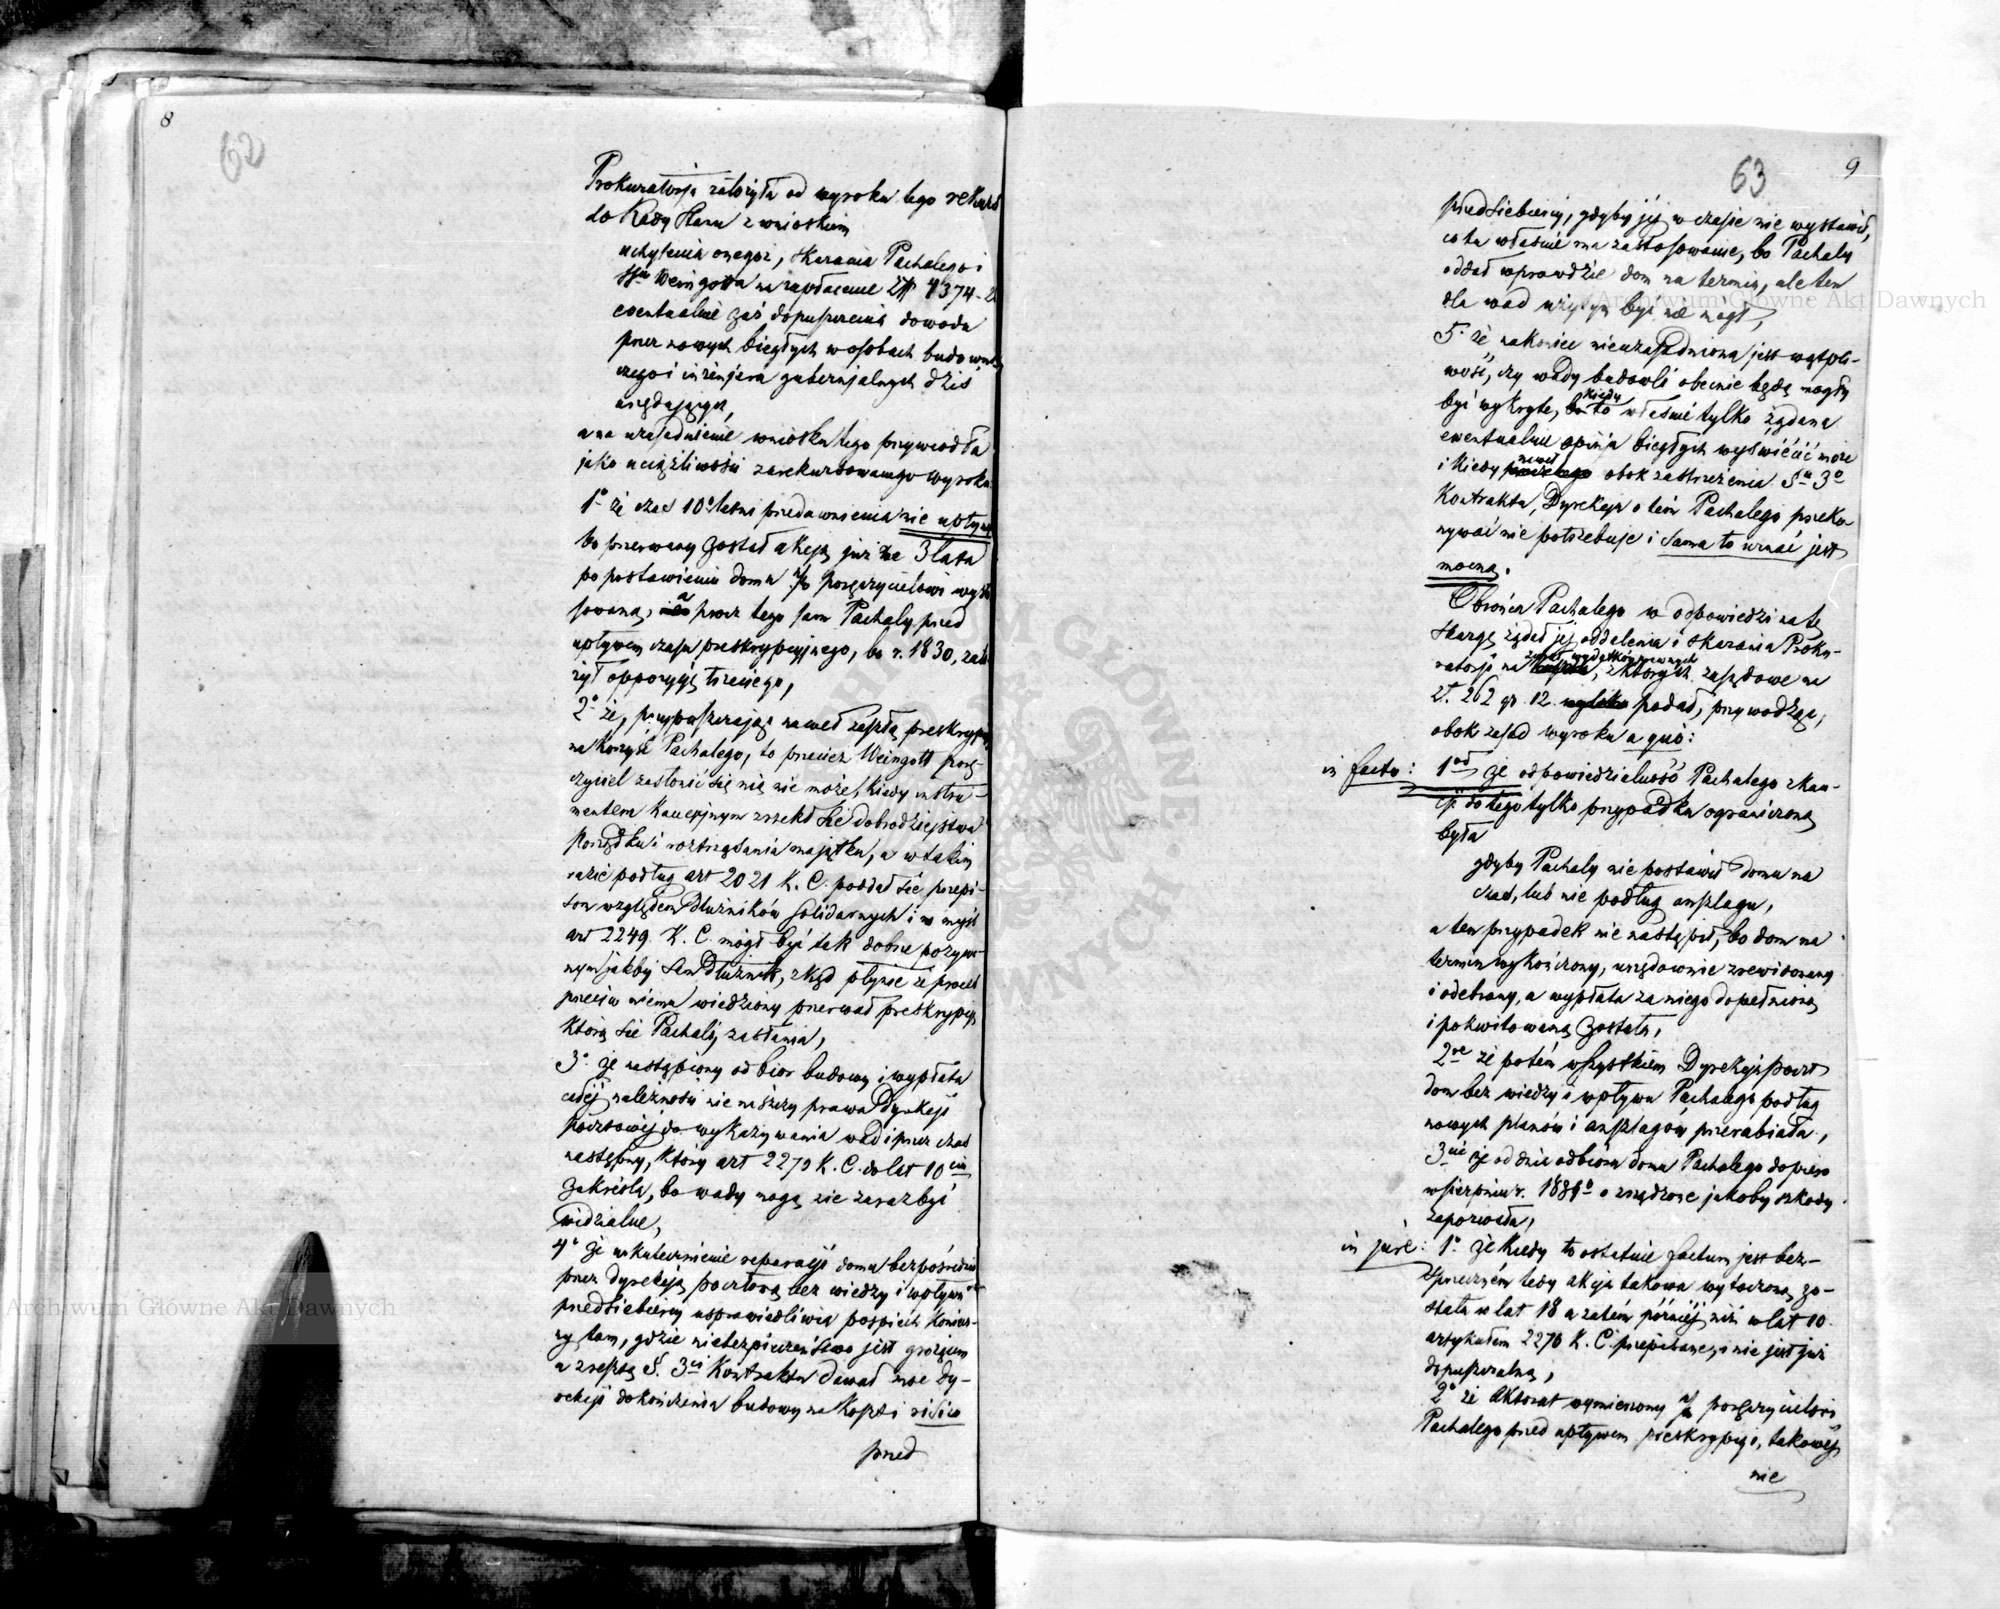 8
62
Prokuratorja założyła od wyroku tego rekurs
do Rady Stanu z wnioskiem
uchylenia onegoż, skazania Pachalego i
Weingotta na zapłacenie Złp 4374
ewentualnie zaś dopuszczenia dowodu
przez nowych biegłych w osobach budowni-
czego i inżenjera gubernjalnych dziś
urzędujących,
a na uzasadnienie wniosku tego przywiodła
jako uciążliwości zarekursowanego wyroku
1° że czas 10° letni przedawnienia nie upłynął
bo przerwany został akcją już we 3 lata
po postawieniu domu p/ko poręczycielowi wysto-
sowaną, a prócz tego sam Pachaly przed
upływem czasu preskrypcyjnego, bo r. 1830, zało-
żył oppozycję trzeciego,
2° że, przypuszczając nawet zaszłą preskrypcję
na korzyść Pachalego, to przecież Weingott porę-
czyciel zasłonić się nią nie może, kiedy instru-
mentem kaucyjnym zrzekł się dobrodziejstwa
porządku i roztrząsania majątku, a w takim
razie podług art 2021 K. C. poddał się przepi-
som względem dłużników solidarnych i w myśl
art 2249 K. C. mógł być tak dobrze pozywa-
nym jakby sam dłużnik, zkąd płynie że proces
przeciw niemu wiedziony przerwał preskrypcję
którą się Pachaly zasłania,
3° że nastąpiony odbior budowy i wypłata
całej należności nie niszczy prawa Dyrekcji
pocztowéj do wykazywania wad i przez czas
następny, który art 2270 K. C. do lat 10ciu
zakreśla, bo wady mogą nie zaraz być
widzialne,
4° że uskutecznienie reparacji domu bezpośrednio
przez dyrekcją pocztową bez wiedzy i wpływu
przedsiebiercy usprawiedliwia pospiech koniecz-
ny tam, gdzie niebezpieczeństwo jest grożącem
a zresztą §. 3ci Kontraktu dawał moc Dy-
rekcji dokończenia budowy na koszt i risico
przed
63
9
przedsiebiercy, gdyby jéj w czasie nie wystawił,
co tu właśnie ma zastosowanie, bo Pachaly
oddał wprawdzie dom na termin, ale ten
dla wad użytym być nie mógł,
5° że nakoniec nieuzasadnioną jest wątpli-
wość, czy wady budowli obecnie będą mogły
być wykryte, kiedy to właśnie tylko żądana
ewentualnie opinja biegłych wyświécić może
i kiedy nawet obok zastrzeżenia §u 3o
Kontraktu, Dyrekcja o tém Pachalego przeko-
nywać nie potrzebuje i sama to uznać jest
mocną.
Obrońca Pachalego w odpowiedzi na tę
skargę żądał jej oddalenia i skazania Proku-
ratorji na zwrot wydatków prawnych, z których zasądowe na
zł. 262 gr. 12 podał, przywodząc,
obok zasad wyroku a quo:
in facto: 1od że odpowiedzialność Pachalego z kau-
cji do tego tylko przypadku ograniczoną
była
gdyby Pachaly nie postawił domu na
czas, lub nie podług anszlagu,
a ten przypadek nie nastąpił, bo dom na
termin wykończony, urzędownie zrewidowany
i odebrany, a wypłata za niego dopełnioną
i pokwitowaną została,
2re że potém wszystkiem Dyrekcja poczt
dom bez wiedzy i wpływu Pachalego podług
nowych planów i anszlagów przerabiała,
3cie że od dnia odbioru domu Pachalego dopiero
w sierpniu r. o zrządzone jakoby szkody
zapozwała,
in jure: 1° że kiedy to ostatnie factum jest bez-
sprzeczném tedy akcja takowa wytoczoną zo-
stała w lat 18 a zatém późniéj niż w lat 10
artykułem 2270 K. C. przepisane, i nie jest już
dopuszczalną,
2° że Aktorat wymierzony p/ko poręczycielowi
Pachalego przed upływem preskrypcji, takowéj
nie
Archiwum Główne Akt Dawnych
Archiwum Główne Akt Dawnych